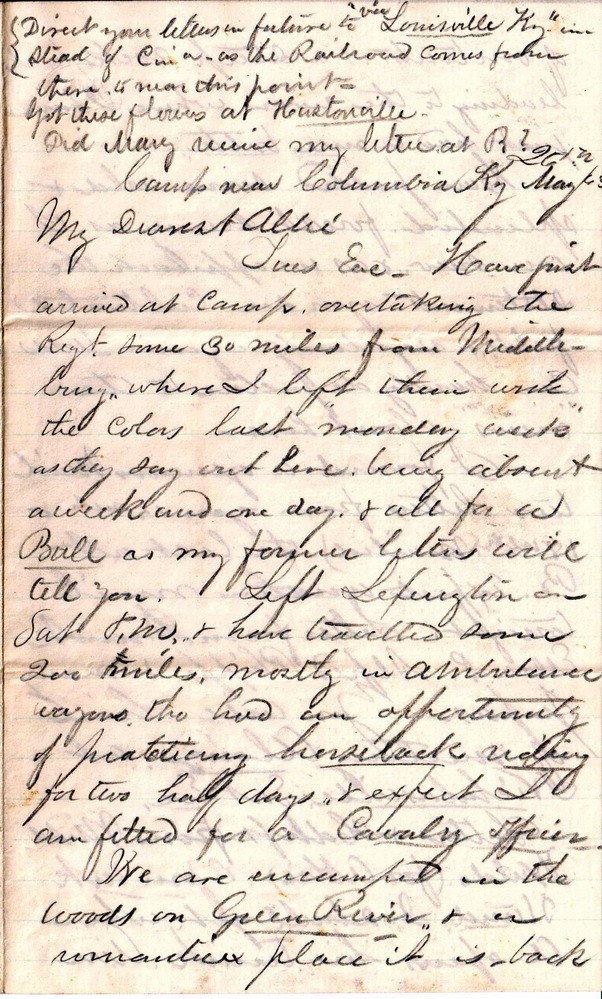 Direct your letters in future to "via Louisville Ky" in
stead of Cin a - as the Railroad comes from
there to near this point -
Got these flowers at Hustonville -
Did Mary receive my letter at R?
Camp near Columbia Ky May
My Dearest Allie
Tues Eve - Have just
arrived at Camp, overtaking the
Regt. some 30 miles from Middle-
burg, where I left them with
the Colors last "monday week"
as they say out here. being absent
a week and one day. & all for a
Ball as my former letters will
tell you. Left Lexington on
Sat P.M., & have travelled some
200 miles, mostly in ambulance
wagons, tho had an opportunity
of practicing horseback riding
for two half days, & expect I
am fitted for a Cavalry officer.
We are encamped in the
woods on Green River & a
romantic place it is - back